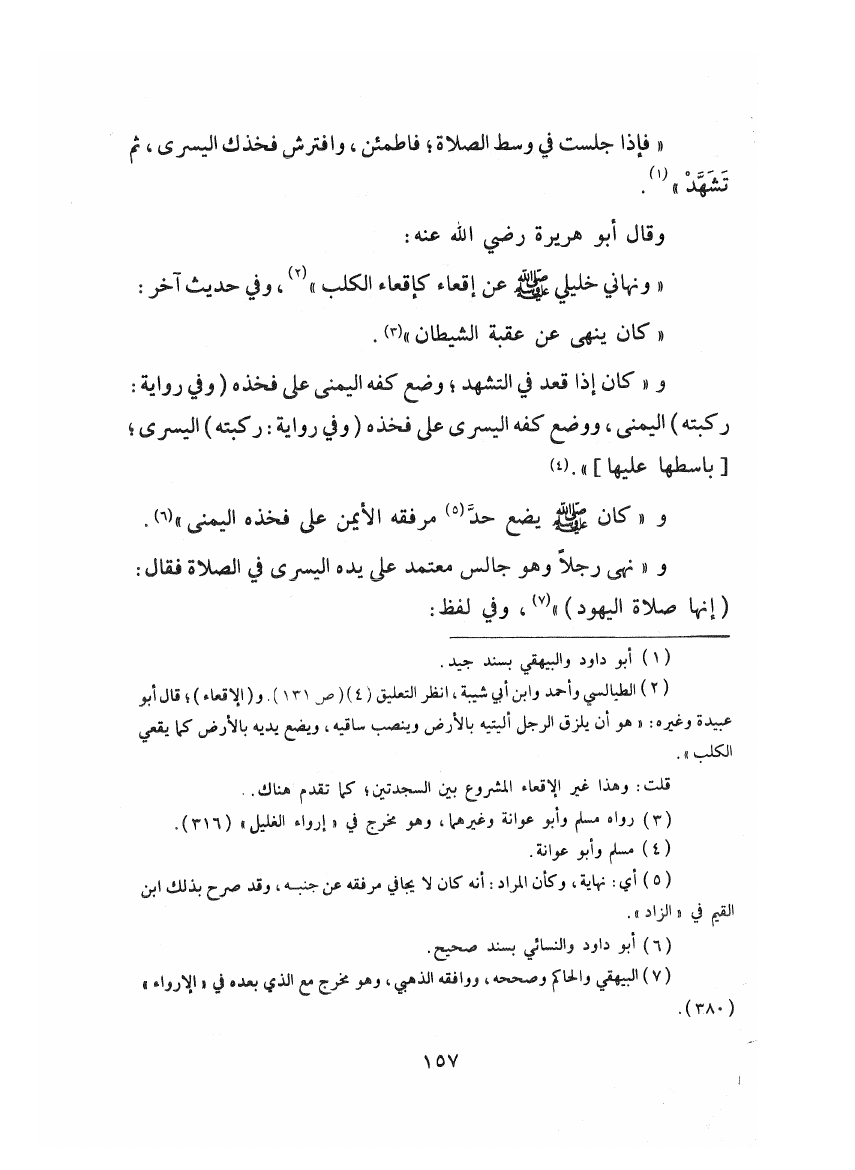 « فإذا جلست في وسط الصلاة ؛ فاطمئن ، وافترش فخذك اليسرى ، ثم
تَشَهَّدْ »(١) .
وقال أبو هريرة رضي الله عنه :
« ونهاني خليلي ﷺ عن إقعاء كإقعاء الكلب »(٢) ، وفي حديث آخر :
« كان ينهى عن عقبة الشيطان »(٣) .
و « كان إذا قعد في التشهد ؛ وضع كفه اليمنى على فخذه ( وفي رواية :
ركبته ) اليمنى ، ووضع كفه اليسرى على فخذه ( وفي رواية : ركبته ) اليسرى ؛
[ باسطها عليها ] » .(٤)
و « كان ﷺ يضع حدَّ(٥) مرفقه الأيمن على فخذه اليمنى »(٦) .
و « نهى رجلاً وهو جالس معتمد على يده اليسرى في الصلاة فقال :
( إنها صلاة اليهود ) »(٧) ، وفي لفظ :
( ١ ) أبو داود والبيهقي بسند جيد .
( ٢ ) الطيالسي وأحمد وابن أبي شيبة ، انظر التعليق ( ٤ ) ( ص ١٣١ ) . و ( الإقعاء ) ؛ قال أبو
عبيدة وغيره : « هو أن يلزق الرجل أليتيه بالأرض وينصب ساقيه ، ويضع يديه بالأرض كما يقعي
الكلب » .
قلت : وهذا غير الإقعاء المشروع بين السجدتين ؛ كما تقدم هناك . .
( ٣ ) رواه مسلم وأبو عوانة وغيرهما ، وهو مخرج في « إرواء الغليل » ( ٣١٦ ) .
( ٤ ) مسلم وأبو عوانة .
( ٥ ) أي : نهاية ، وكأن المراد : أنه كان لا يجافي مرفقه عن جنبه ، وقد صرح بذلك ابن
القيم في « الزاد » .
( ٦ ) أبو داود والنسائي بسند صحيح .
( ٧ ) البيهقي والحاكم وصححه ، ووافقه الذهبي ، وهو مخرج مع الذي بعده في « الإرواء »
( ٣٨٠ ) .
١٥٧